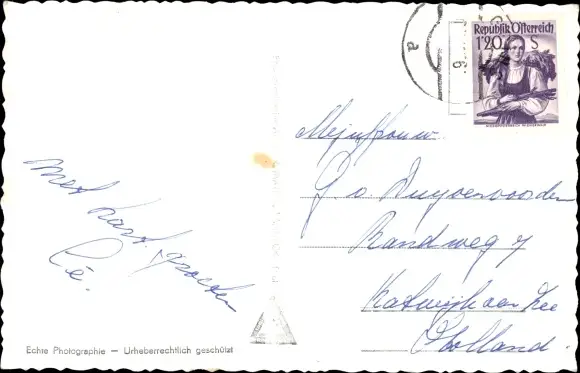 Republik Österreich
1'20 S
a
9
Mejuffrouw
G v. Duyvenvoorden
Randweg 7
Katwijk aan Zee
Holland.
met hart. groeten
Echte Photographie — Urheberrechtlich geschützt